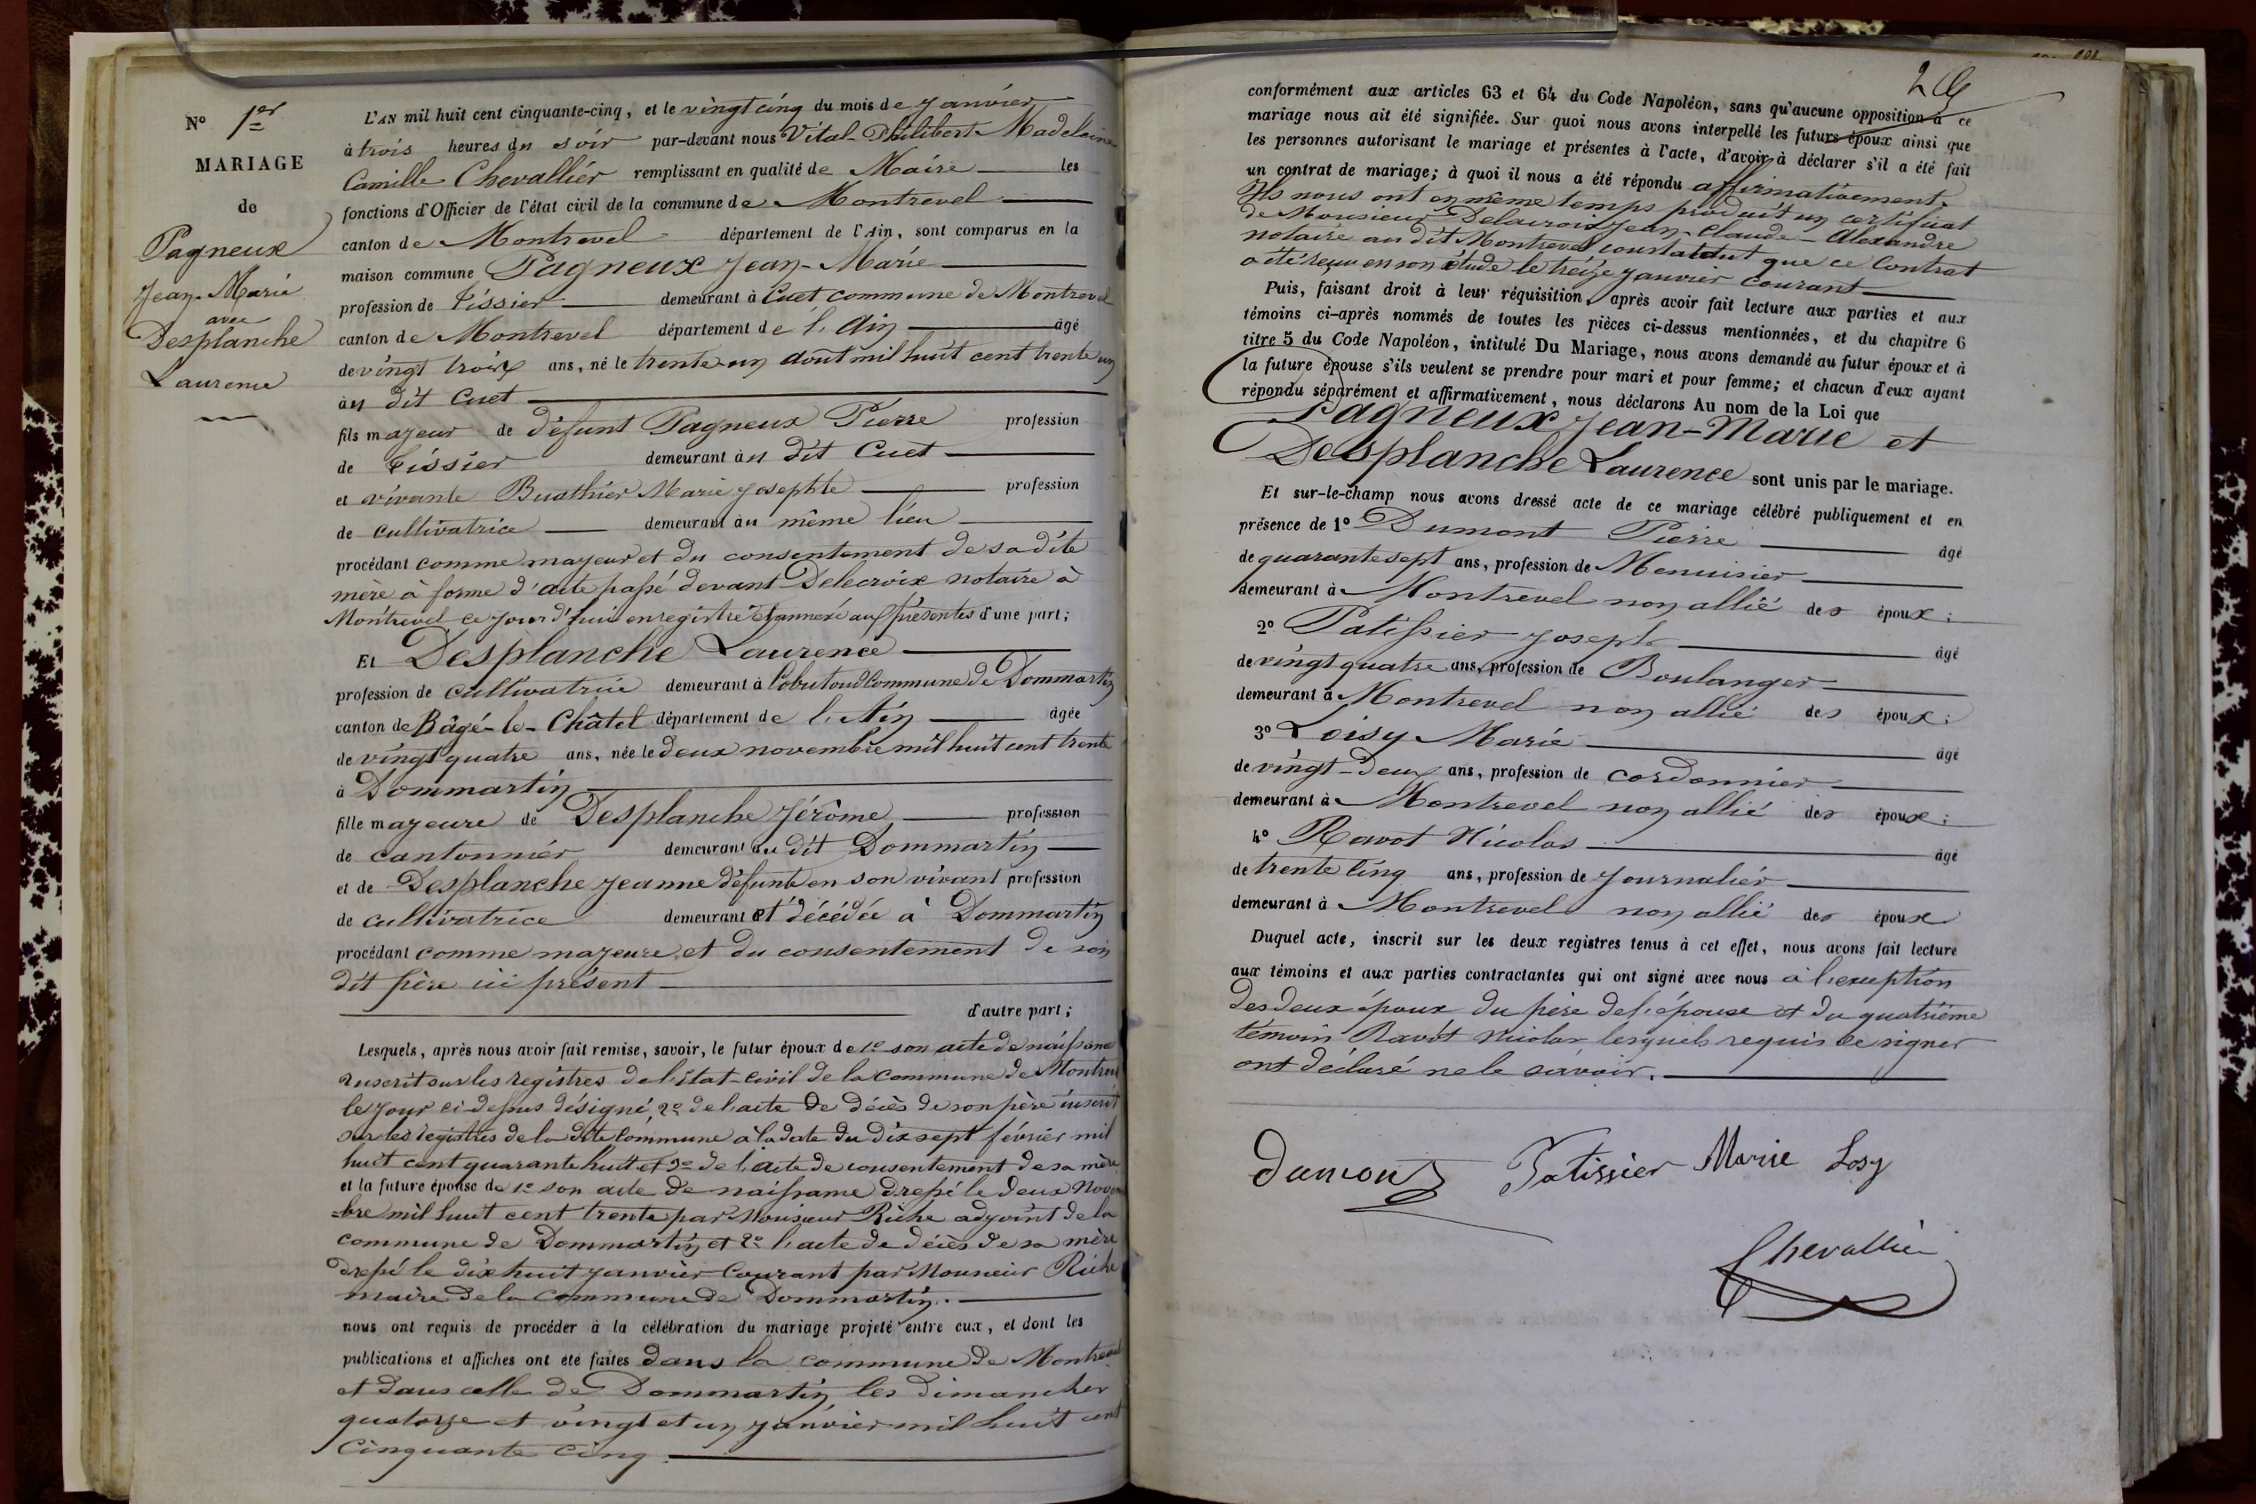 N° 1er
MARIAGE
de
Pagneux
Jean-Marie
avec
Desplanche
Laurence
L'AN mil huit cent cinquante-cinq, et le vingt cinq du mois de Janvier
à trois heures du soir par-devant nous Vital-Philibert-Madelaine
Camille Chevallier remplissant en qualité de Maire les
fonctions d'Officier de l'état civil de la commune de Montrevel
canton de Montrevel département de l'Ain, sont comparus en la
maison commune Pagneux Jean-Marie
profession de Tissier demeurant à Cuet commune de Montrevel
canton de Montrevel département de l'Ain âgé
de vingt trois ans, né le trente un août mil huit cent trente un
au dit Cuet
fils majeur de défunt Pagneux Pierre profession
de Tissier demeurant au dit Cuet
et vivante Buathier Marie Josephte profession
de cultivatrice demeurant au même lieu
procédant comme majeur et du consentement de sa dite
mère à forme d'acte passé devant Delacroix notaire à
Montrevel ce jourd'hui enregistré et annexé aux présentes d'une part;
Et Desplanche Laurence
profession de cultivatrice demeurant à commune de Dommartin
canton de Bâgé-le-Châtel département de l'Ain âgée
de vingt quatre ans, née le deux novembre mil huit cent trente
à Dommartin
fille majeure de Desplanche Jérôme profession
de cantonnier demeurant au dit Dommartin
et de Desplanche Jeanne défunte en son vivant profession
de cultivatrice demeurant et décédée à Dommartin
procédant comme majeure et du consentement de son
dit père ici présent
d'autre part;
Lesquels, après nous avoir fait remise, savoir, le futur époux de 1° son acte de naissance
inscrit sur les registres de l'état-civil de la commune de Montrevel
le jour ci-dessus désigné, 2° de l'acte de décès de son père inscrit
sur les registres de la dite commune à la date du dix sept février mil
huit cent quarante huit et 3° de l'acte de consentement de sa mère
et la future épouse de 1° son acte de naissance dressé le deux Novem
-bre mil huit cent trente par Monsieur Riche adjoint de la
commune de Dommartin et 2° l'acte de décès de sa mère
dressé le dix huit janvier courant par Monsieur Riche
maire de la commune de Dommartin.
nous ont requis de procéder à la célébration du mariage projeté entre eux, et dont les
publications et affiches ont été faites dans la commune de Montrevel
et dans celle de Dommartin les dimanches
quatorze et vingt et un janvier mil huit cent
cinquante cinq.
2
conformément aux articles 63 et 64 du Code Napoléon, sans qu'aucune opposition à ce
mariage nous ait été signifiée. Sur quoi nous avons interpellé les futurs époux ainsi que
les personnes autorisant le mariage et présentes à l'acte, d'avoir à déclarer s'il a été fait
un contrat de mariage; à quoi il nous a été répondu affirmativement.
Ils nous ont en même temps produit un certificat
de Monsieur Delacroix Jean-Claude-Alexandre
notaire au dit Montrevel constatant que ce Contrat
a été reçu en son étude le treize janvier courant
Puis, faisant droit à leur réquisition, après avoir fait lecture aux parties et aux
témoins ci-après nommés de toutes les pièces ci-dessus mentionnées, et du chapitre 6
titre 5 du Code Napoléon, intitulé Du Mariage, nous avons demandé au futur époux et à
la future épouse s'ils veulent se prendre pour mari et pour femme; et chacun d'eux ayant
répondu séparément et affirmativement, nous déclarons Au nom de la Loi que
Pagneux Jean-Marie et
Desplanche Laurence sont unis par le mariage.
Et sur-le-champ nous avons dressé acte de ce mariage célébré publiquement et en
présence de 1° Dumont Pierre âgé
de quarante sept ans, profession de Menuisier
demeurant à Montrevel non allié des époux;
2° Patissier Joseph âgé
de vingt quatre ans, profession de Boulanger
demeurant à Montrevel non allié des époux;
3° Loisy Marie âgé
de vingt-deux ans, profession de cordonnier
demeurant à Montrevel non allié des époux;
4° Ravot Nicolas âgé
de trente cinq ans, profession de journalier
demeurant à Montrevel non allié des époux
Duquel acte, inscrit sur les deux registres tenus à cet effet, nous avons fait lecture
aux témoins et aux parties contractantes qui ont signé avec nous à l'exception
des deux époux du père de l'épouse et du quatrième
témoin Ravot Nicolas lesquels requis de signer
ont déclaré ne le savoir.
Dumont Patissier Marie Losy
Chevallier